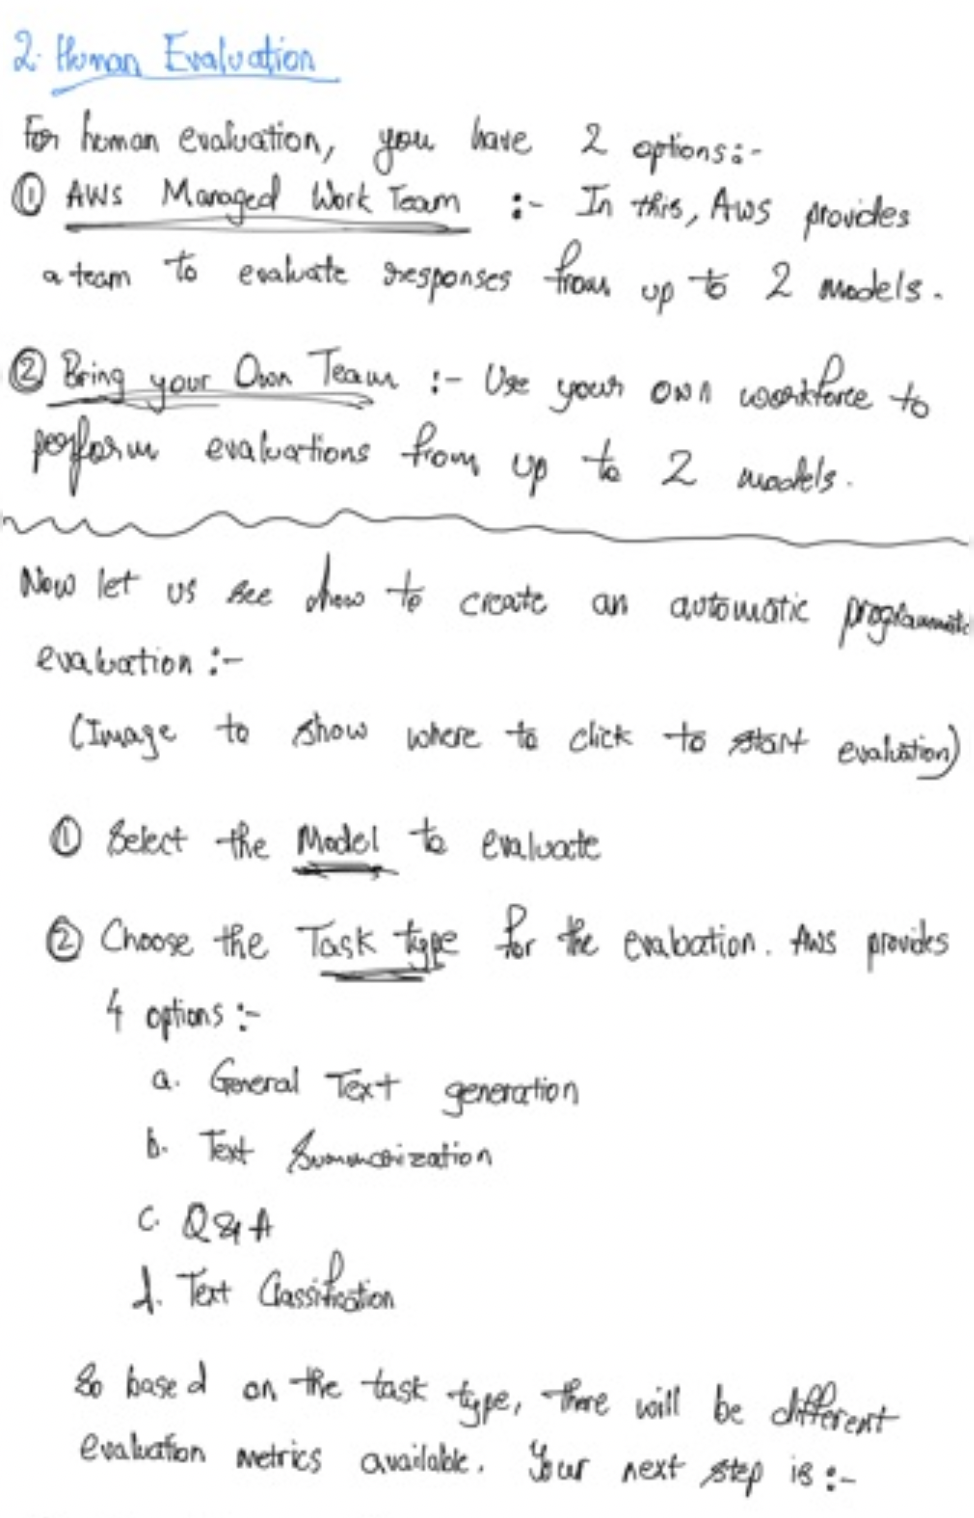 2. Human Evaluation
For human evaluation, you have 2 options:-
① AWS Managed Work Team :- In this, AWS provides
a team to evaluate responses from up to 2 models.
② Bring your Own Team :- Use your own workforce to
perform evaluations from up to 2 models.
Now let us see how to create an automatic programmatic
evaluation :-
(Image to show where to click to start evaluation)
① Select the Model to evaluate
② Choose the Task type for the evaluation. AWS provides
4 options :-
a. General Text generation
b. Text Summarization
c. Q & A
d. Text Classification
So based on the task type, there will be different
evaluation metrics available. Your next step is :-